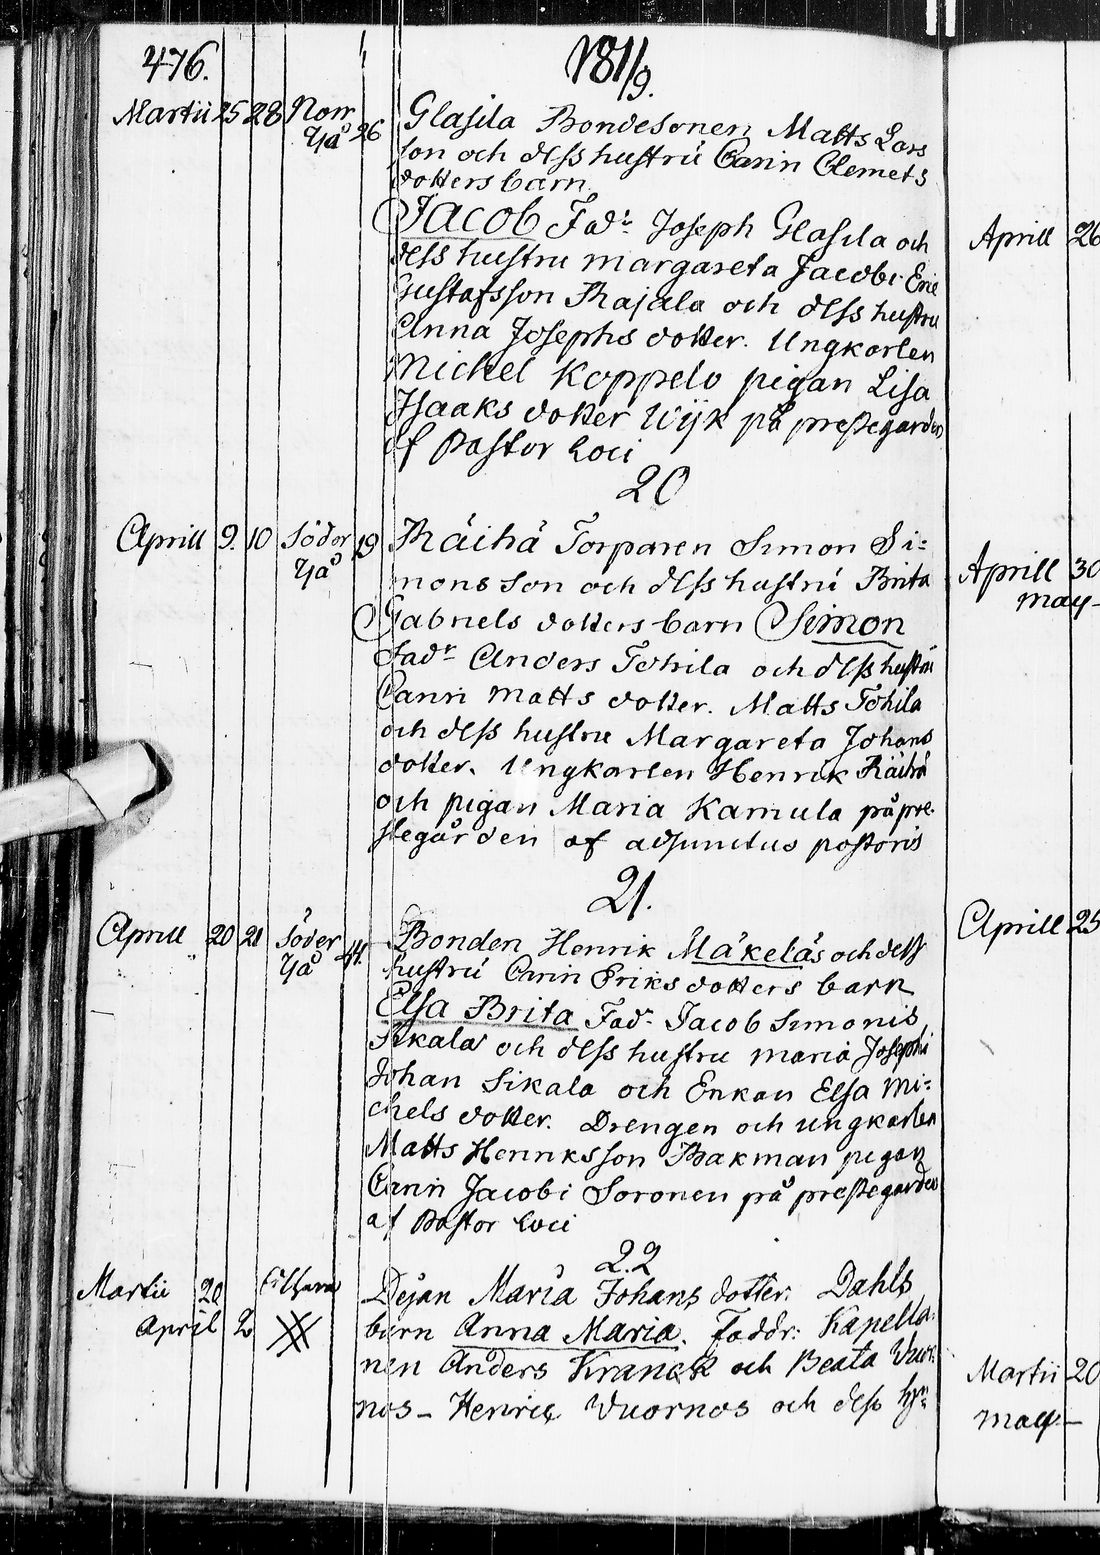 476.
1811/9.
Martii 25 28 Norr 26 Glasila Bondesonen Matts Lars
Yå
son och dess hustru Carin Clemets
dotters barn.
Jacob Fadr Joseph Glasila och
dess hustru Margareta Jacobi. Eric
Gustafsson Rajala och dess hustru
Anna Josephs dotter. Ungkarlen
Michel Koppelo pigan Lisa
Isaaks dotter Wijk på prestegården
af Pastor Loci
20
Aprill 9. 10 Söder 19 Räihä Torparen Simon Si=
Yå
mons son och dess hustru Brita
Gabriels dotters barn Simon
Fadr Anders Tohila och dess hustru
Carin Matts dotter. Matts Tohila
och dess hustru Margareta Johans
dotter. Ungkarlen Henrik Räihä
och pigan Maria Kamula på pre-
stegården af adjunctus pastoris
21.
Aprill 20 21 Söder 41. Bonden Henrik Mäkeläs och dess
Yå
hustru Carin Eriks dotters barn
Elsa Brita Fadr Jacob Simonis
Sikala och dess hustru Maria Josephi
Johan Sikala och Enkan Elsa Mi=
chels dotter. Drengen och ungkarlen
Matts Henriksson Backman pigan
Carin Jacobi Soronen på prestegården
af Pastor Loci
22
Martii 20 Dejan Maria Johans dotter Dahls
April 2 barn Anna Maria. Faddr: Kapella-
nen Anders Kranck och Beata Vuor-
nos – Henric Vuornos och dess
Aprill 26
Aprill 30
may –
Aprill 25
Martii 20
may –